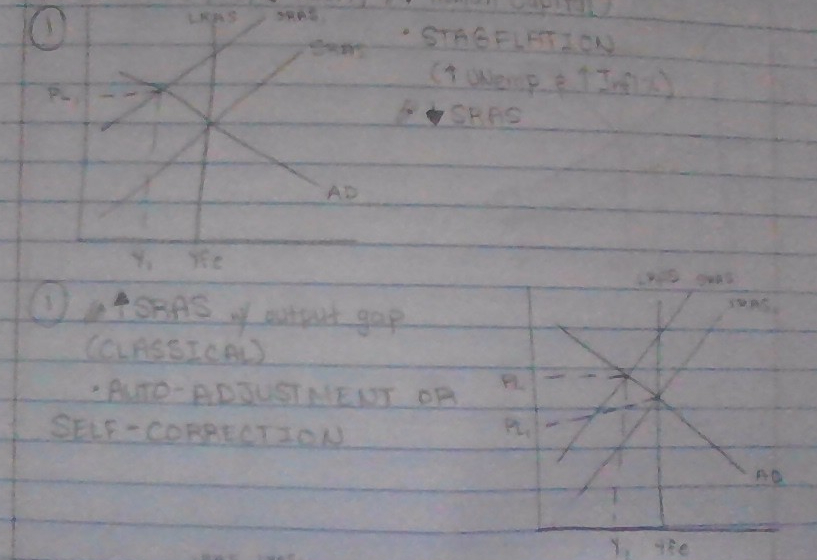 ①
LRAS SRAS₁
SRAS
PL₁
AD
Y₁ YFE
• STAGFLATION
(↑ Unemp & ↑ Infl.)
↓ SRAS
①
↑SRAS w/ output gap
(CLASSICAL)
• AUTO-ADJUSTMENT OR
SELF-CORRECTION
LRAS SRAS
SRAS₁
PL
PL₁
AD
Y₁ YFE